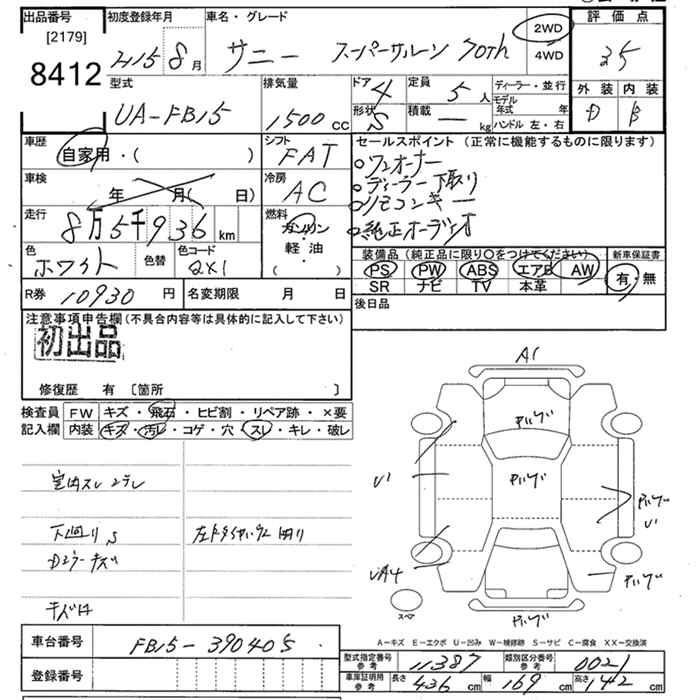 出品番号 初度登録年月 車名・グレード 評価点
[2179] 8412
H15 8月 サニー スーパーサルーン 70th 2WD 4WD
型式 排気量 ドア 4 定員 5人 ディーラー・並行
UA-FB15 1500cc 形状 S 積載 ー kg モデル年式 年 ハンドル 左・右
外装 内装
D B
車歴 シフト セールスポイント (正常に機能するものに限ります)
自家用・( ) FAT
ワンオーナー
車検 冷房 ディーラー下取り
年 月( 日) AC リモコンキー
走行 燃料 純正オーディオ
8万5千936km ガソリン
軽・油
( )
色 色替 色コード
ホワイト QX1
装備品 (純正品に限り○をつけてください) 新車保証書
PS PW ABS エアB AW 有・無
SR ナビ TV 本革
R券 10930円 名変期限 月 日 後日品
注意事項申告欄 (不具合内容等は具体的に記入して下さい)
初出品
修復歴 有 〔箇所 〕
検査員 FW キズ・飛石・ヒビ割・リペア跡・×要
記入欄 内装 キズ・汚レ・コゲ・穴・スレ・キレ・破レ
室内スレ
下廻りS
Dミラーキズ
キズ汚
A1
U1
UA4
スペア
A-キズ E-エクボ U-凹み W-補修跡 S-サビ C-腐食 XX-交換済
車台番号 FB15-390405
登録番号
型式指定番号 参考 11387 類別区分番号 参考 0021
車庫証明用 参考 長さ 436cm 幅 169cm 高さ 142cm